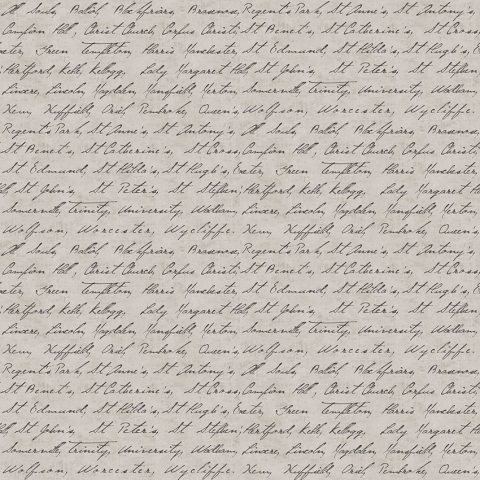 All Souls, Balliol, Blackfriars, Brasenose, Regent's Park, St Anne's, St Antony's,
Campion Hall, Christ Church, Corpus Christi, St Benet's, St Catherine's, St Cross,
Exeter, Green Templeton, Harris Manchester, St Edmund, St Hilda's, St Hugh's,
Hertford, Keble, Kellogg, Lady Margaret Hall, St John's, St Peter's, St Stephen
Linacre, Lincoln, Magdalen, Mansfield, Merton, Somerville, Trinity, University, Wadham,
Oriel, Pembroke, Queen's, Wolfson, Worcester, Wycliffe.
Regent's Park, St Anne's, St Antony's, All Souls, Balliol, Blackfriars, Brasenose,
St Benet's, St Catherine's, St Cross, Campion Hall, Christ Church, Corpus Christi,
St Edmund, St Hilda's, St Hugh's, Exeter, Green Templeton, Harris Manchester,
St John's, St Peter's, St Stephen, Hertford, Keble, Kellogg, Lady Margaret
Somerville, Trinity, University, Wadham, Linacre, Lincoln, Magdalen, Mansfield, Merton
Wolfson, Worcester, Wycliffe. Oriel, Pembroke, Queen's
All Souls, Balliol, Blackfriars, Brasenose, Regent's Park, St Anne's, St Antony's,
Campion Hall, Christ Church, Corpus Christi, St Benet's, St Catherine's, St Cross,
Exeter, Green Templeton, Harris Manchester, St Edmund, St Hilda's, St Hugh's,
Hertford, Keble, Kellogg, Lady Margaret Hall, St John's, St Peter's, St Stephen
Linacre, Lincoln, Magdalen, Mansfield, Merton, Somerville, Trinity, University, Wadham,
Oriel, Pembroke, Queen's, Wolfson, Worcester, Wycliffe.
Regent's Park, St Anne's, St Antony's, All Souls, Balliol, Blackfriars, Brasenose,
St Benet's, St Catherine's, St Cross, Campion Hall, Christ Church, Corpus Christi,
St Edmund, St Hilda's, St Hugh's, Exeter, Green Templeton, Harris Manchester,
St John's, St Peter's, St Stephen, Hertford, Keble, Kellogg, Lady Margaret
Somerville, Trinity, University, Wadham, Linacre, Lincoln, Magdalen, Mansfield, Merton
Wolfson, Worcester, Wycliffe. Oriel, Pembroke, Queen's